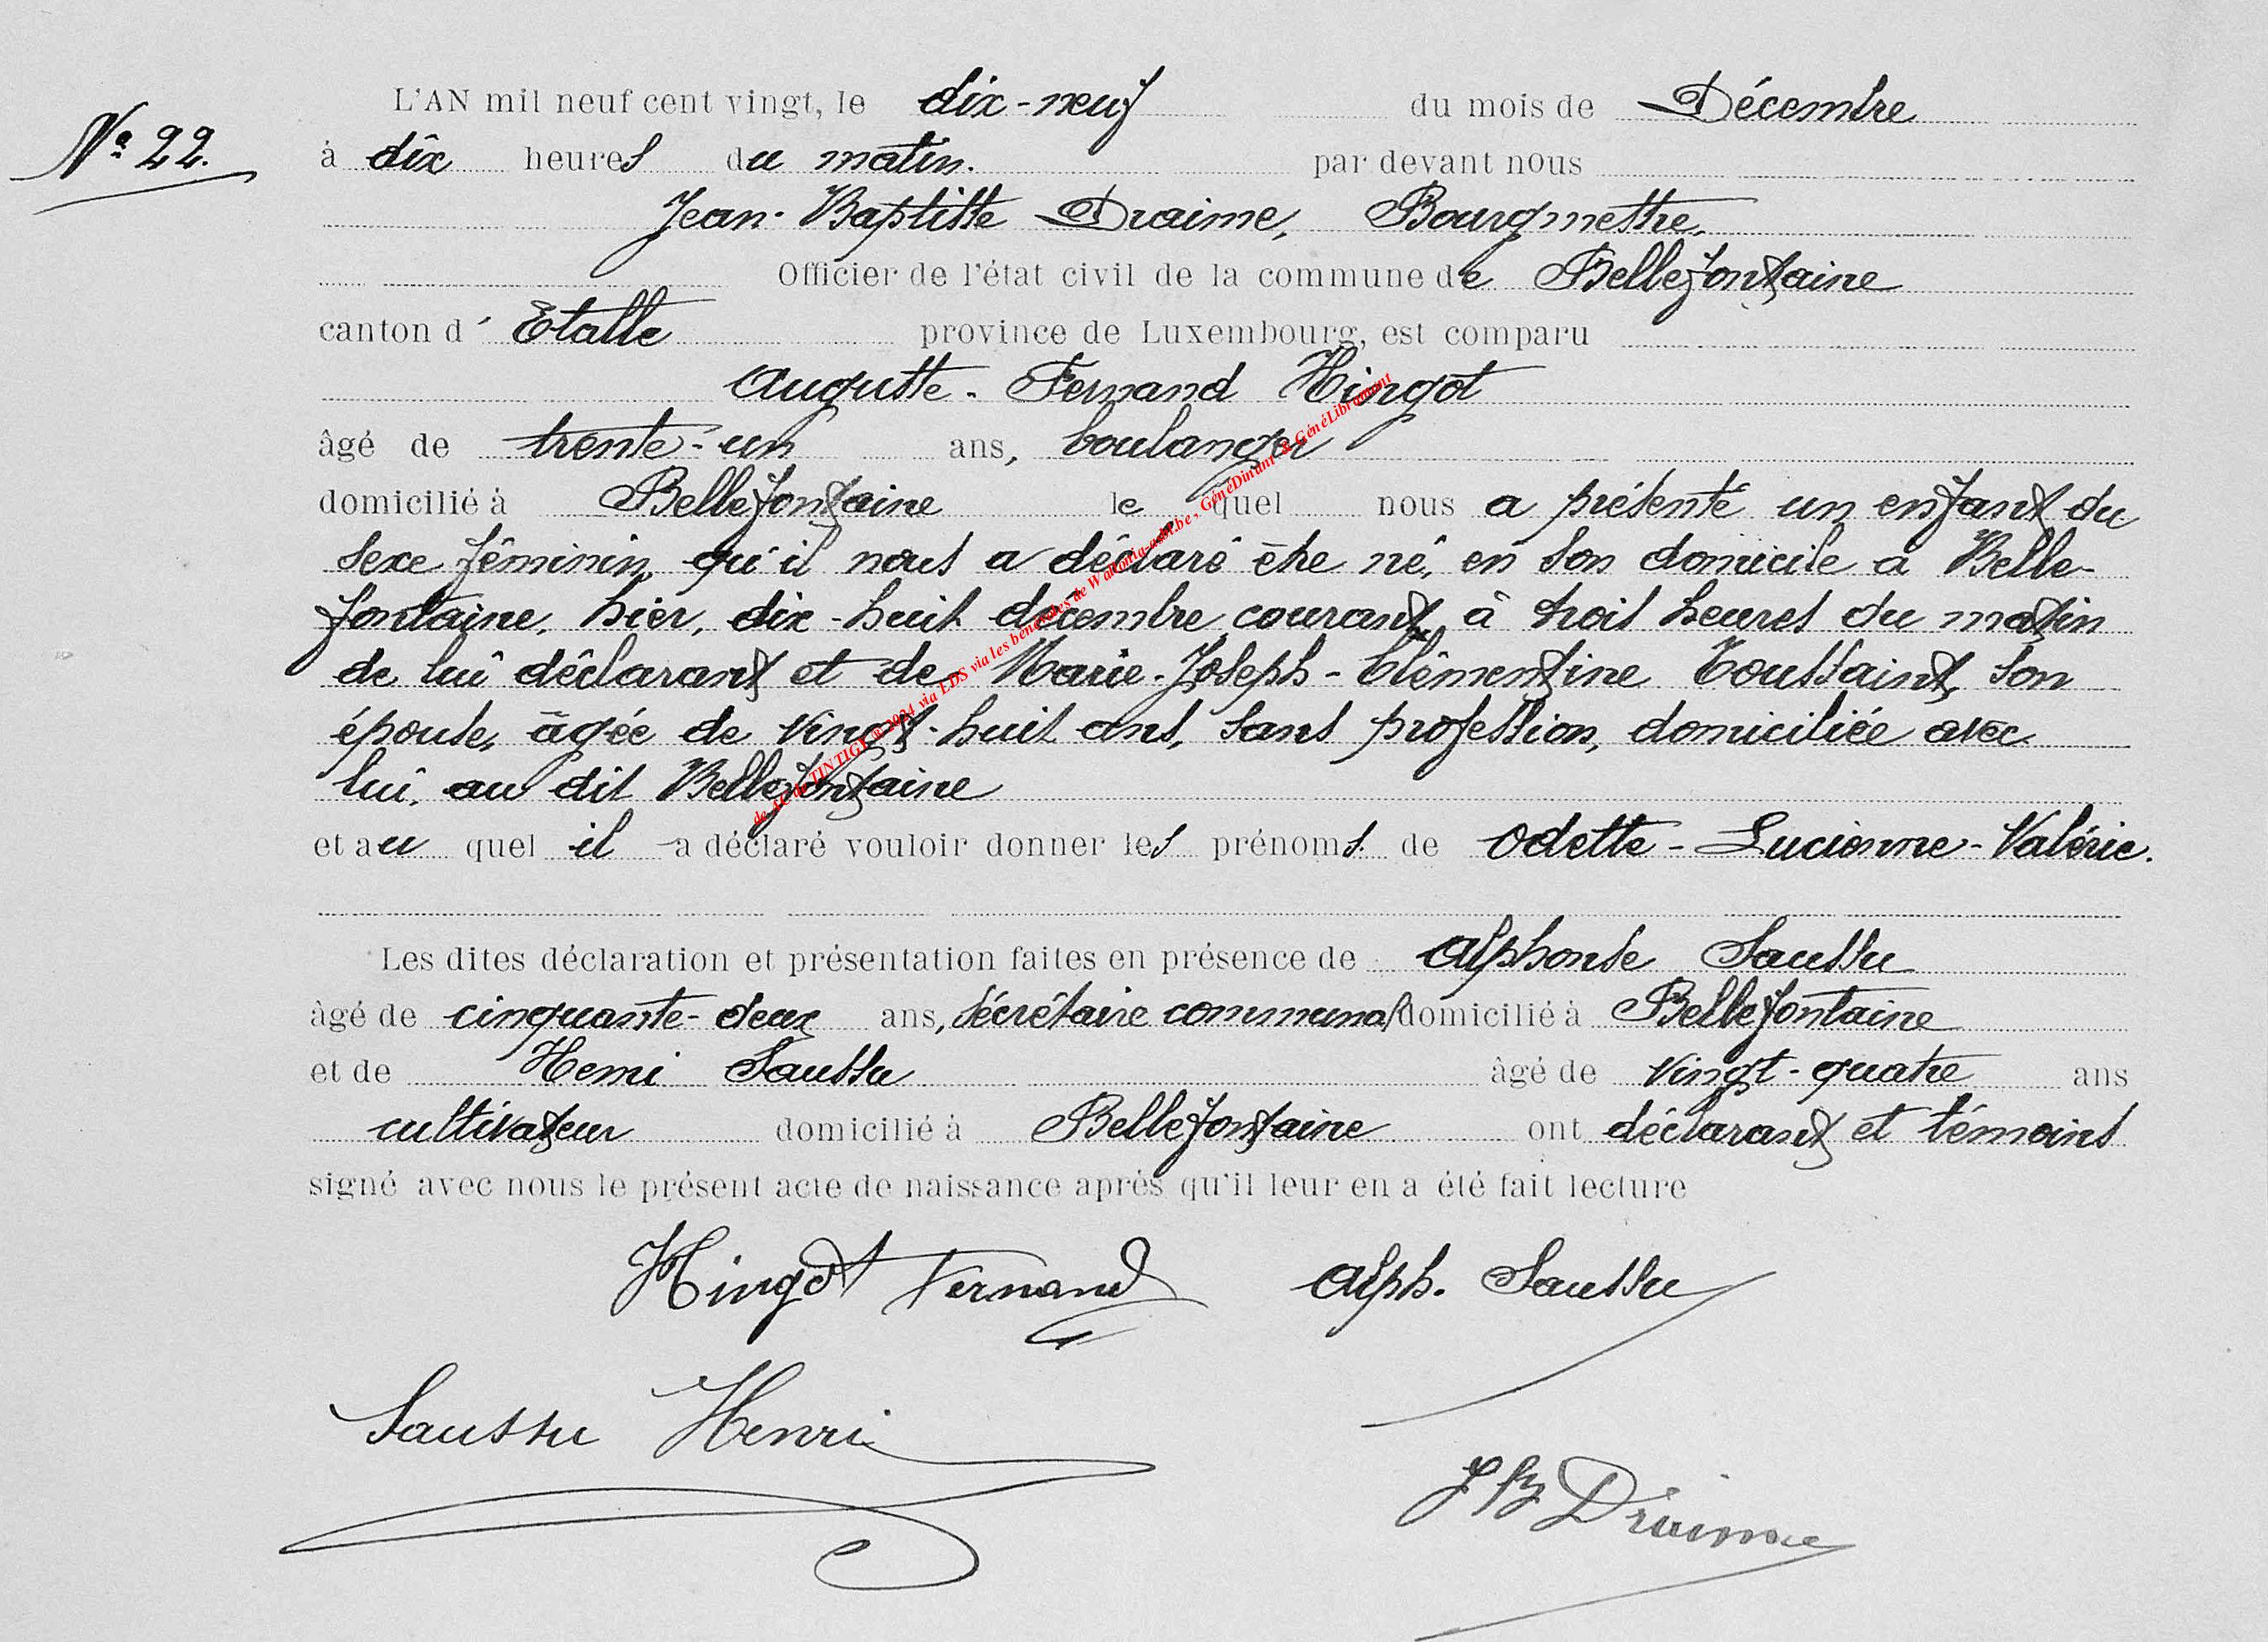 L'AN mil neuf cent vingt, le dix-neuf du mois de Décembre
Nº 22.
à dix heures du matin. par devant nous
Jean-Baptiste Draime, Bourgmestre,
Officier de l'état civil de la commune de Bellefontaine
canton d' Etalle province de Luxembourg, est comparu
Auguste-Fernand Hingot
âgé de trente-un ans, boulanger
domicilié à Bellefontaine le quel nous a présenté un enfant du
sexe féminin, qu'il nous a déclaré être né, en son domicile à Belle-
fontaine, hier, dix-huit décembre courant, à trois heures du matin
de lui déclarant et de Marie-Joseph-Clémentine Toussaint, son
épouse, âgée de vingt-huit ans, sans profession, domiciliée avec
lui, au dit Bellefontaine
et au quel il a déclaré vouloir donner les prénoms de Odette-Lucienne-Valérie.
Les dites déclaration et présentation faites en présence de Alphonse Saussu
âgé de cinquante-deux ans, sécrétaire communal domicilié à Bellefontaine
et de Henri Saussu âgé de vingt-quatre ans
cultivateur domicilié à Bellefontaine ont déclarant et témoins
signé avec nous le présent acte de naissance après qu'il leur en a été fait lecture
Hingot Fernand Alph. Saussu
Saussu Henri
J B Draime